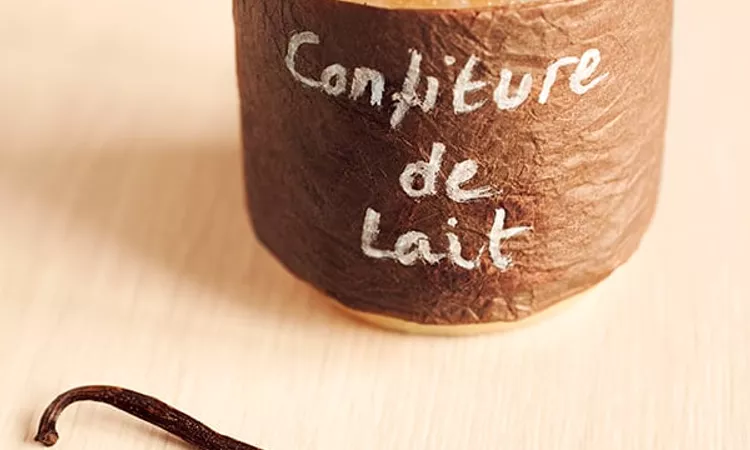 Confiture
de
Lait